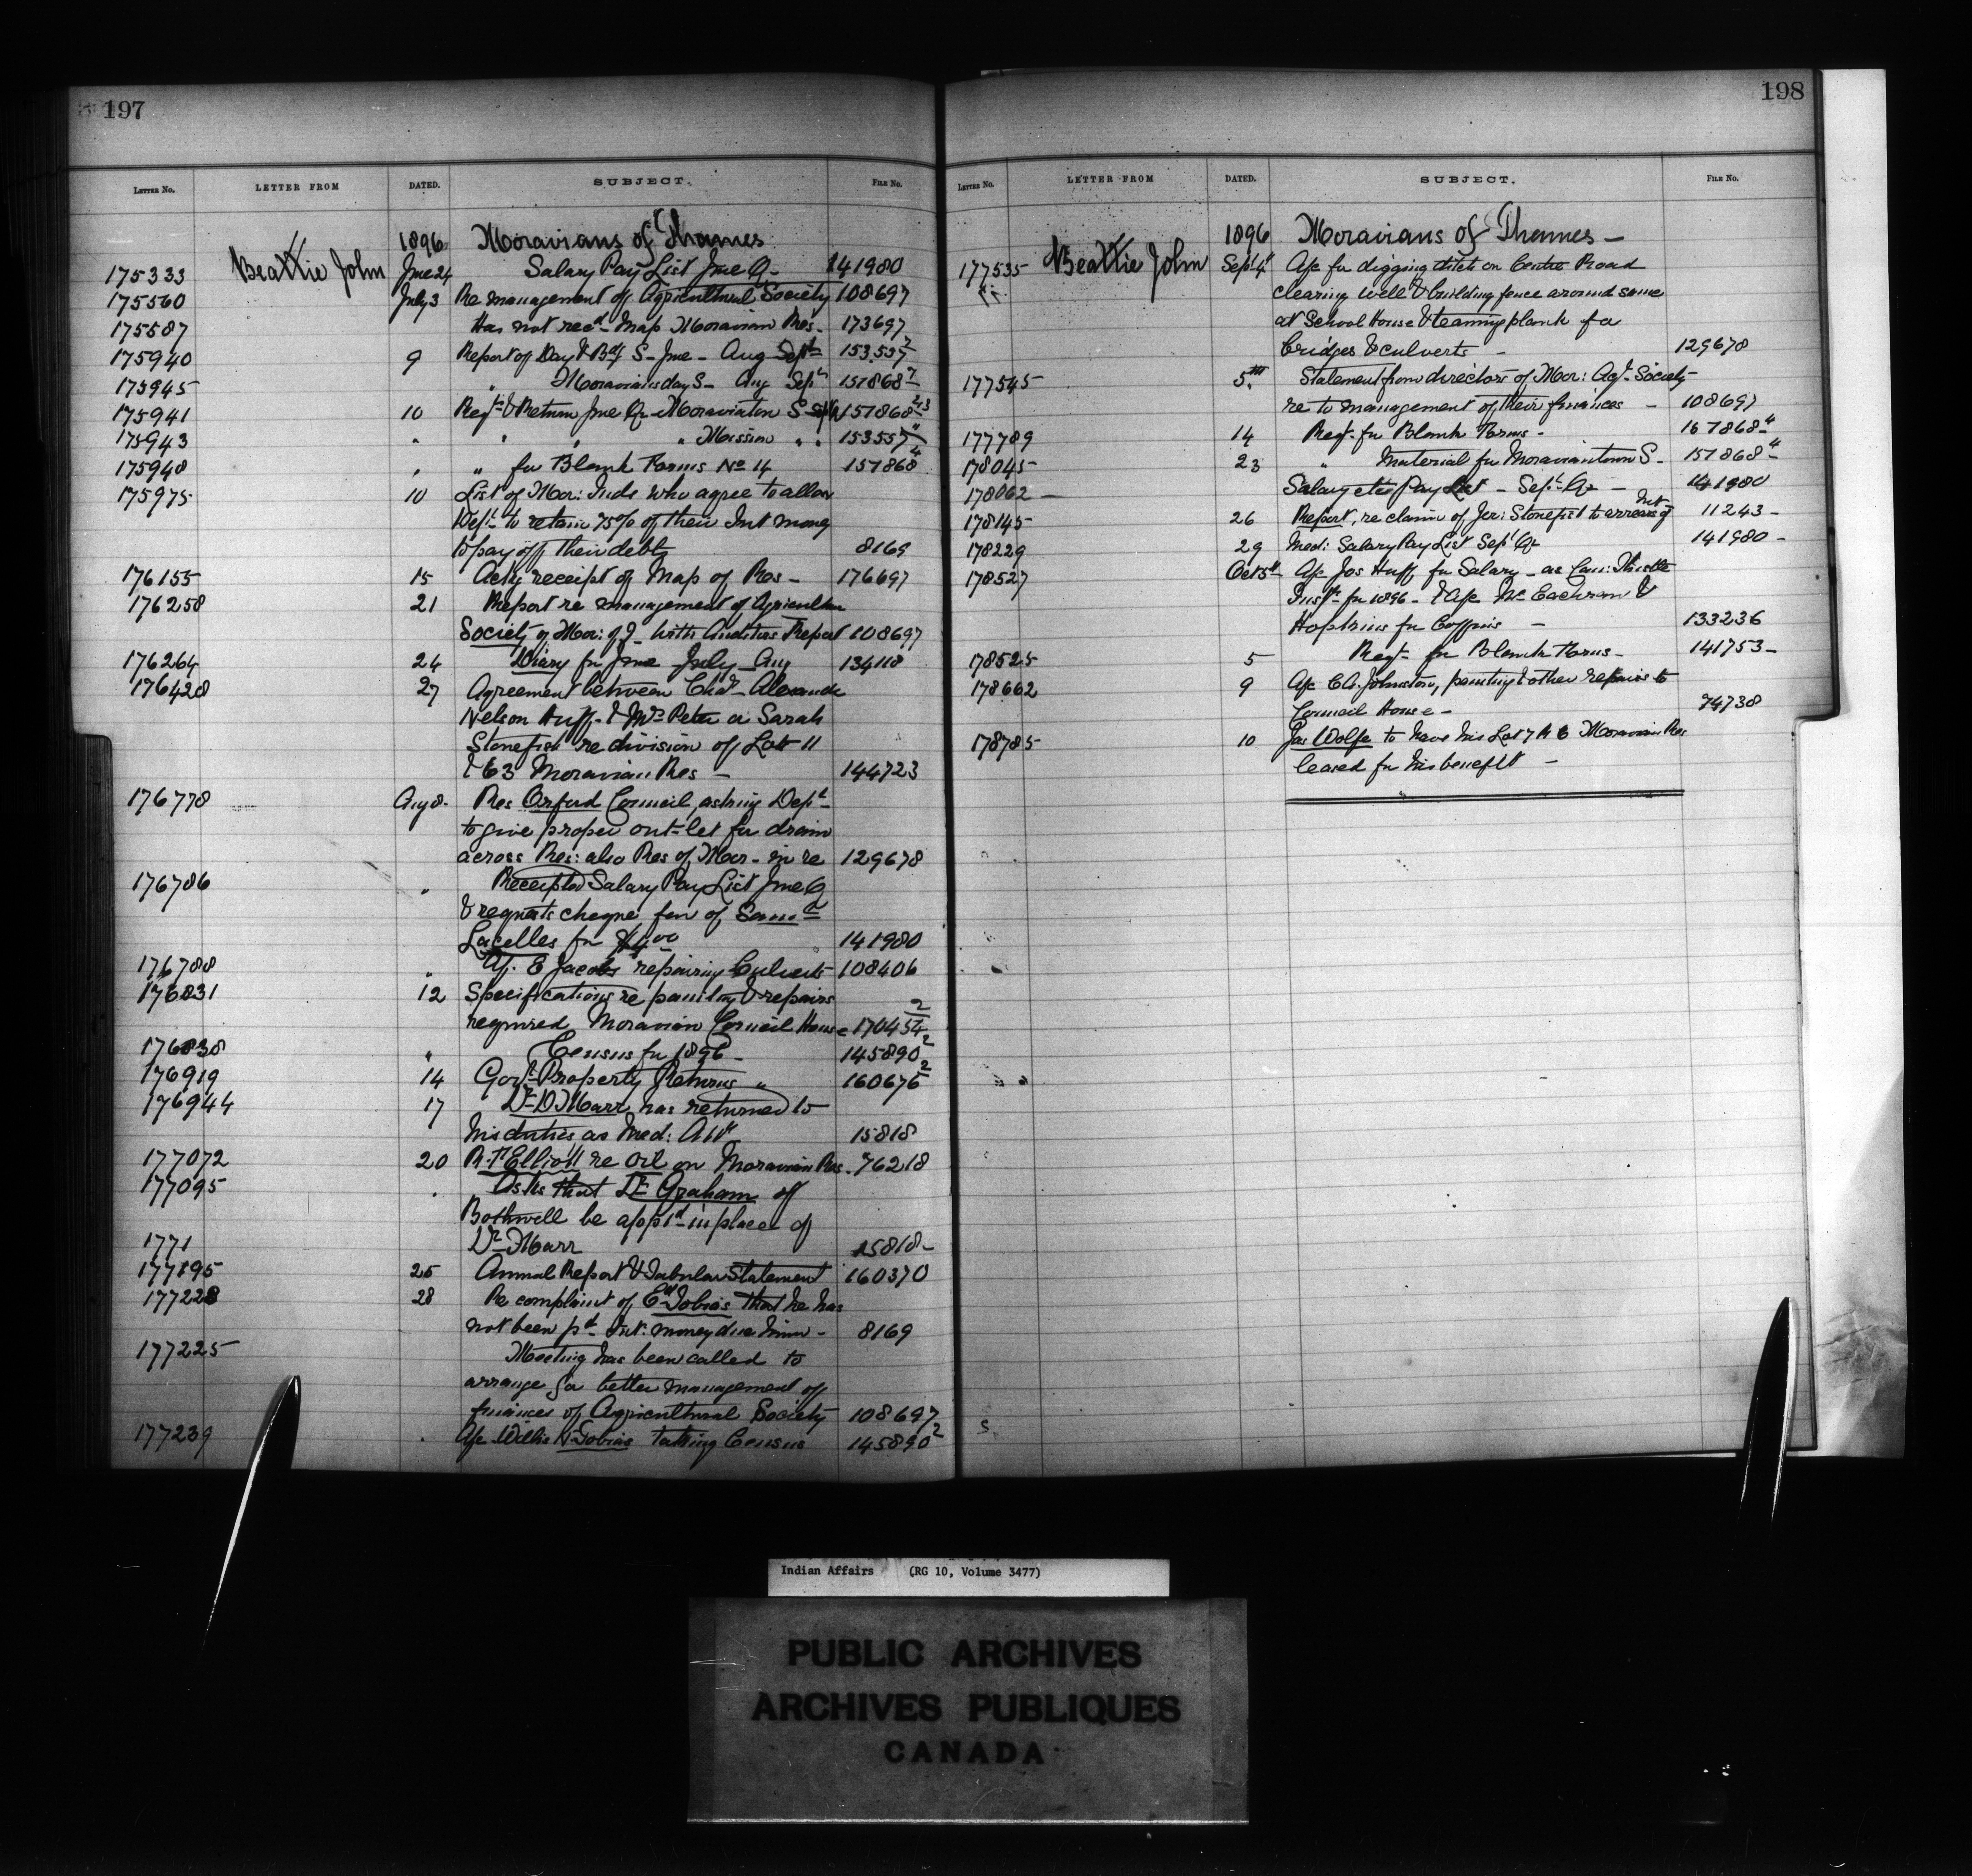 197
LETTER No. LETTER FROM DATED. SUBJECT. FILE No.
1896 Moravians of Thames
175333 Beattie John Jne 24 Salary Pay List Jne Q- 141980
175560 July 3 Re management of Agricultural Society 108697
175587 Has not recd map Moravian Res- 173697
175940 9 Report of Day & Bdg S- Jne - Aug Sept 153.557
175945 " Moravian day S- Aug Sept 151868
175941 10 Reqt & Return Jne Qr Moraviaton S 157868
175943 " " " " Mission " " 153557
175948 " " for Blank Forms No 14 157868 4
175975 10 List of Mor: Inds who agree to allow
Dept to retain 75% of their Int money
to pay off their debts 8169
176155 15 Ackg receipt of Map of Res - 176697
176258 21 Report re management of Agricultur
Society of Mor: of J- with Auditors Report 108697
176264 24 Diary for June July Aug 134118
176428 27 Agreement between Chas Alexander
Nelson Huff & Mrs Peter or Sarah
Stonefish re division of Lots 11
& 63 Moravian Res - 144723
176778 Aug 8. Res Orford Council asking Dept
to give proper out-let for drain
across Res: also Res of Mor- in re 129678
176786 " Receipted Salary Pay List Jne Q
& requests cheque fav of Saml
Lacelles for $4.00 141980
176788 " A/c E Jacobs repairing Culverts 108406
176831 12 Specifications re painting & repairs
required Moravian Council House 170454 2
176838 " Census for 1896 - 145890 2
176919 14 Govt Property Returns " 160676 2
176944 17 Dr D Marr has returned to
his duties as Med: Att 15818
177072 20 R. H Elliott re Oil on Moravian Res. 76218
177095 . Asks that Dr Graham of
Bothwell be appt in place of
1771 Dr Marr 15818-
177195 25 Annual Report & Tabular Statement 160370
177228 28 Re complaint of Ed Tobias that he has
not been pd Int: money due him - 8169
177225 Meeting has been called to
arrange for better management of
finances of Agricultural Society 108697
177239 . A/c Willis N Tobias taking Census 145890 2
198
LETTER No. LETTER FROM DATED. SUBJECT. FILE No.
1896 Moravians of Thames -
177535 Beattie John Sept 4 A/c for digging ditch on Centre Road
clearing well & building fence around same
at School House & teaming plank for
bridges & culverts - 129678
177545 5th Statement from directors of Mor: Agr. Society
re to management of their finances - 108697
177789 14 Reqt- for Blank Forms - 157868 4
178045 23 " Material for Moraviantown S- 157868 4
178062 - Salary etc Pay List - Sept Qr - 141980
178145 26 Report, re claim of Jer: Stonefish to arrears of Int 11243 -
178229 29 Med: Salary Pay List Sept Qr 141980 -
178527 Oct 5th A/c Jos Huff for Salary - as Can: Thistle
Inspr for 1896 - & A/c McEachran &
Hopkins for Coffins - 133236
178525 5 Reqt- for Blank Forms - 141753 -
178662 9 A/c C A. Johnston, painting & other repairs to
Council House - 74738
178785 10 Jas Wolfe to have his Lot 7 A B Moravian Res
leased for his benefit -
Indian Affairs (RG 10, Volume 3477)
PUBLIC ARCHIVES
ARCHIVES PUBLIQUES
CANADA